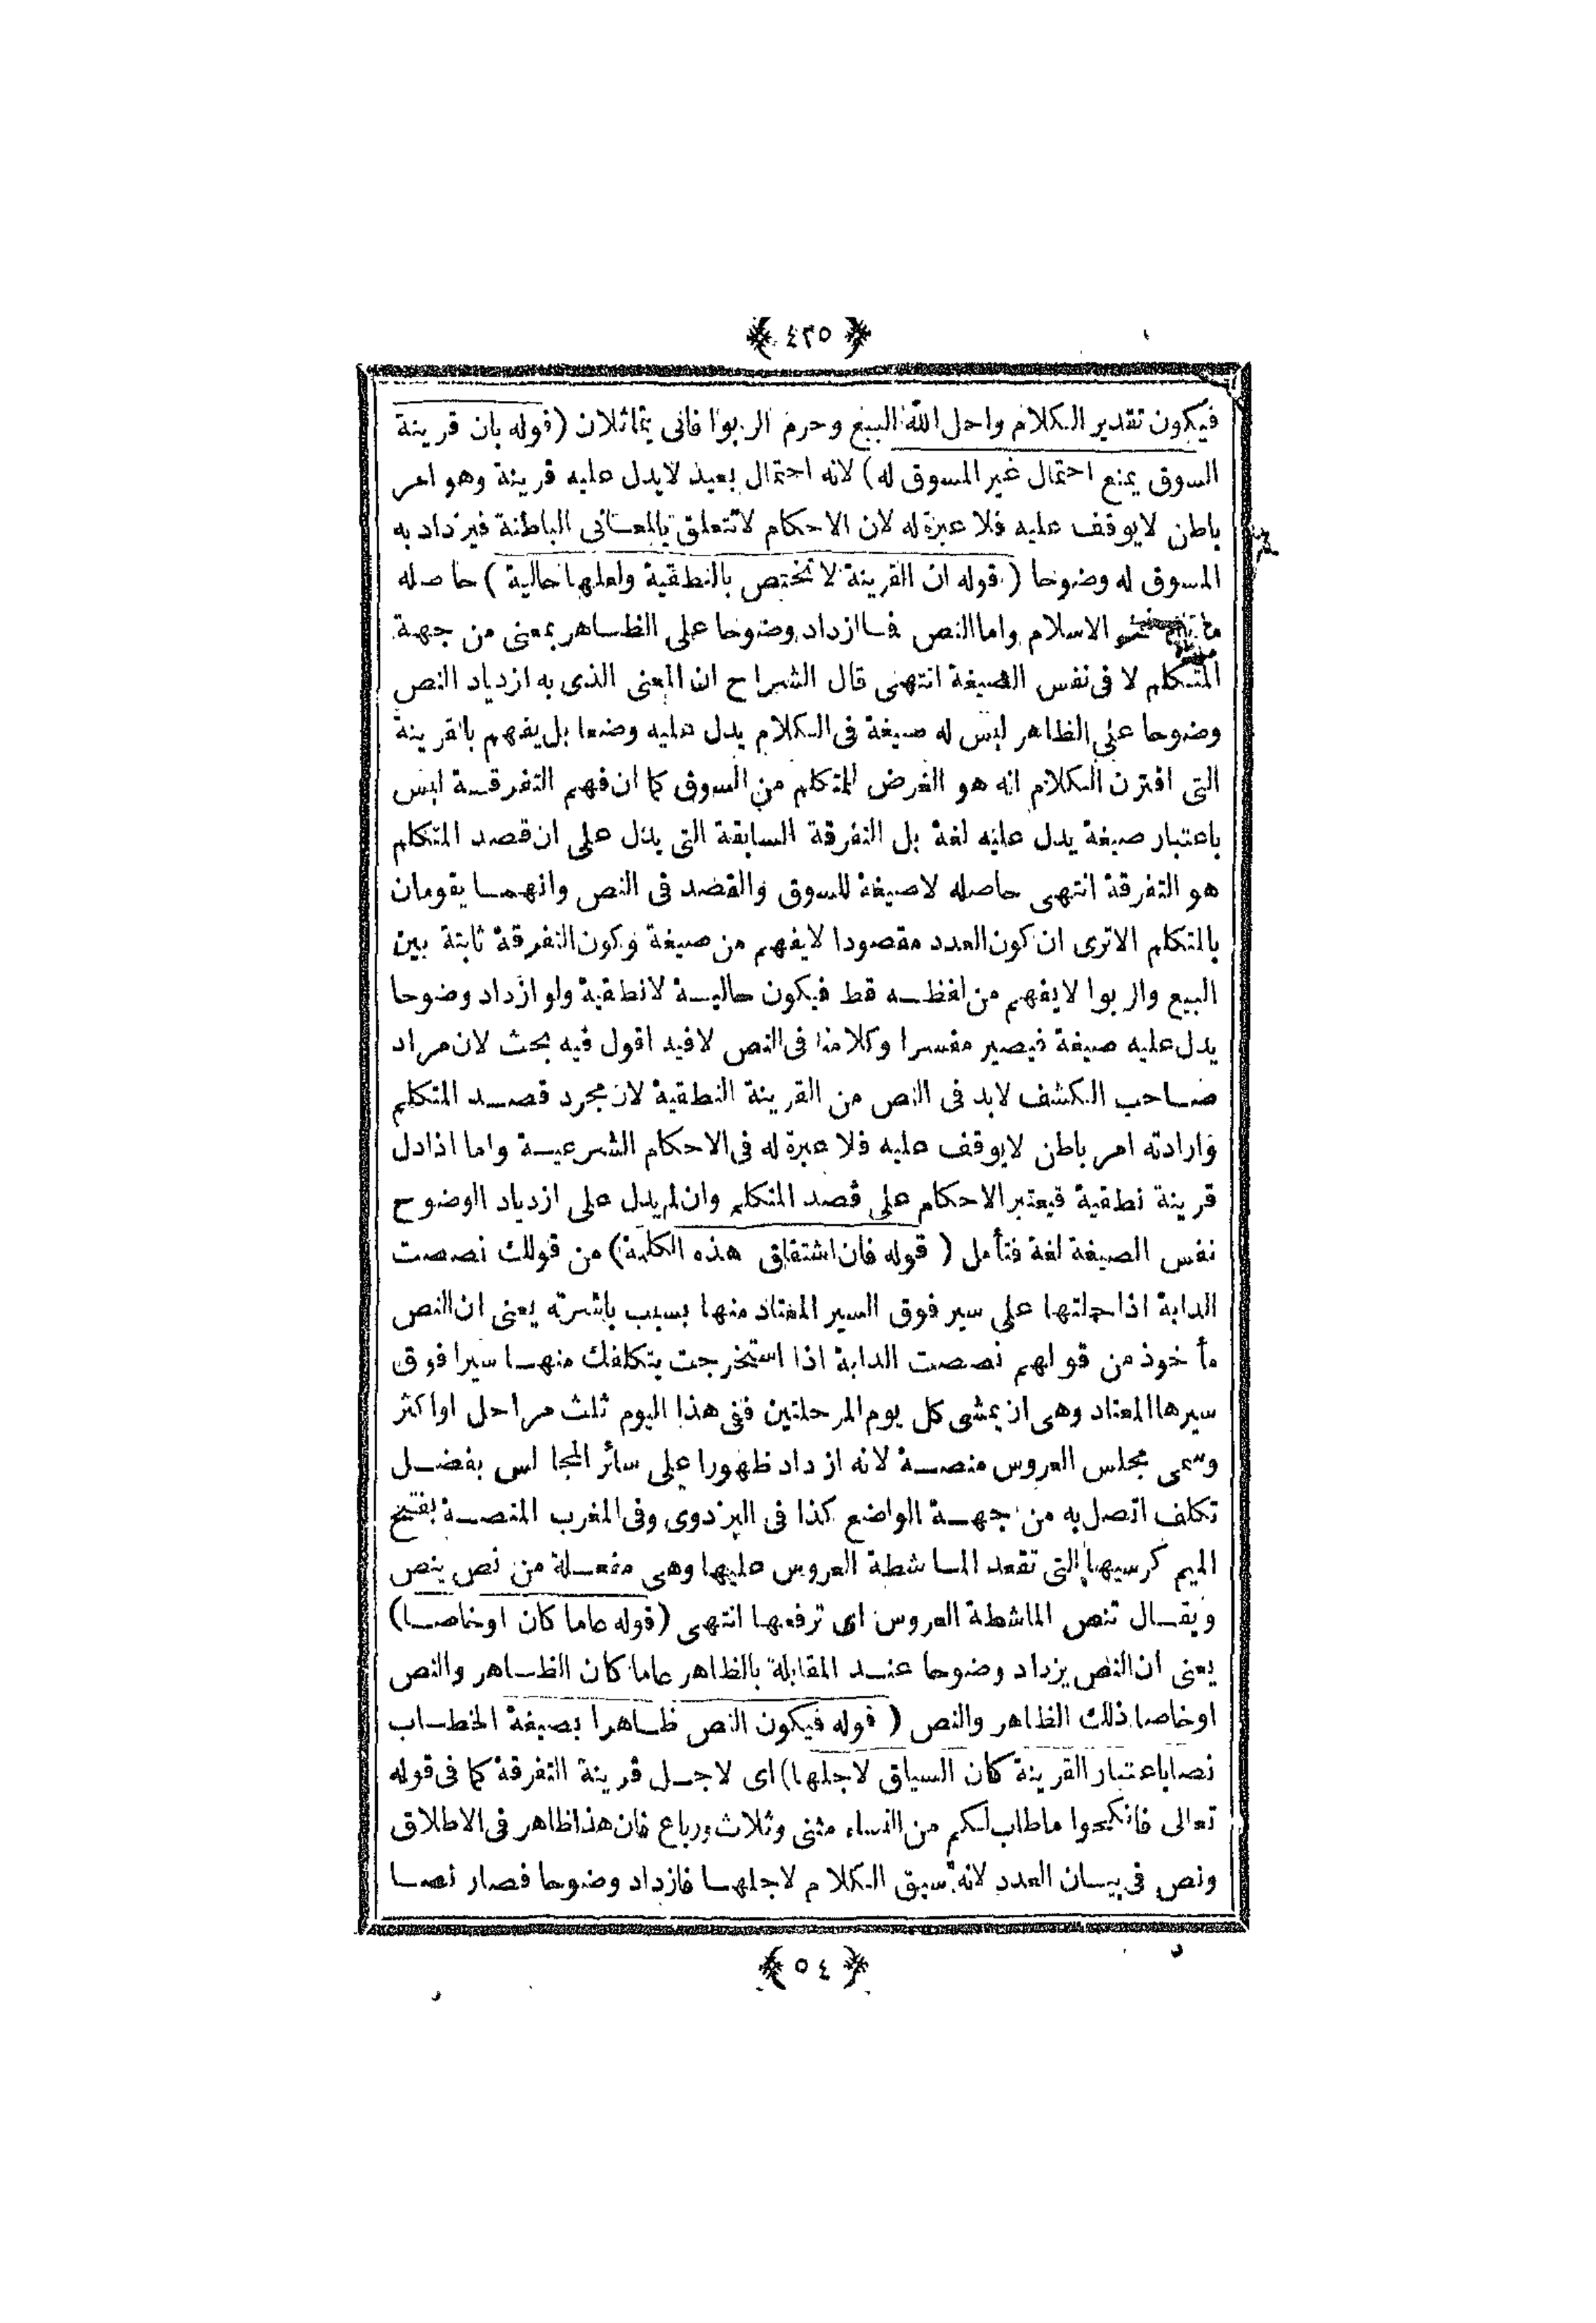 ﴿ ٤٢٥ ﴾
فيكون تقدير الكلام واحل الله البيع وحرم الربوا فانى يتماثلان (قوله بان قرينة
السوق يمنع احتمال غير المسوق له) لانه احتمال بعيد لايدل عليه قرينة وهو امر
باطن لايوقف عليه فلا عبرة له لان الاحكام لاتتعلق بالمعانى الباطنة فيزداد به
المسوق له وضوحا (قوله ان القرينة لاتختص بالنطقية ولعلها حالية) حاصله
الاسلام واما النص فما ازداد وضوحا على الظاهر بمعنى من جهة
المتكلم لا فى نفس الصيغة انتهى قال الشراح ان المعنى الذى به ازدياد النص
وضوحا على الظاهر ليس له صيغة فى الكلام يدل عليه وضعا بل يفهم بالقرينة
التى اقترن الكلام انه هو الغرض للمتكلم من السوق كما ان فهم التفرقة ليس
باعتبار صيغة يدل عليه لغة بل التفرقة السابقة التى يدل على ان قصد المتكلم
هو التفرقة انتهى حاصله لاصيغة للسوق والقصد فى النص وانهما يقومان
بالمتكلم الاترى ان كون العدد مقصودا لايفهم من صيغة وكون التفرقة ثابتة بين
البيع والربوا لايفهم من لفظه قط فيكون حالية لانطقية ولو ازداد وضوحا
يدل عليه صيغة فيصير مفسرا وكلامنا فى النص لافيه اقول فيه بحث لان مراد
صاحب الكشف لابد فى النص من القرينة النطقية لان مجرد قصد المتكلم
وارادته امر باطن لايوقف عليه فلا عبرة له فى الاحكام الشرعية واما اذادل
قرينة نطقية فيعتبر الاحكام على قصد المتكلم وان لم يدل على ازدياد الوضوح
نفس الصيغة لغة فتأمل (قوله فان اشتقاق هذه الكلمة) من قولك نصصت
الدابة اذا حملتها على سير فوق السير المعتاد منها بسبب باشرته يعنى ان النص
مأخوذ من قولهم نصصت الدابة اذا استخرجت بتكلفك منها سيرا فوق
سيرها المعتاد وهى ان يمشى كل يوم المرحلتين ففى هذا اليوم ثلث مراحل او اكثر
وسمى مجلس العروس منصة لانه ازداد ظهورا على سائر المجالس بفضل
تكلف اتصل به من جهة الواضع كذا فى البزدوى وفى المغرب المنصة بفتح
الميم كرسيها التى تقعد الماشطة العروس عليها وهى مفعلة من نص ينص
ويقال تنص الماشطة العروس اى ترفعها انتهى (قوله عاما كان اوخاصا)
يعنى ان النص يزداد وضوحا عند المقابلة بالظاهر عاما كان الظاهر والنص
اوخاصا ذلك الظاهر والنص (قوله فيكون النص ظاهرا بصيغة الخطاب
نصا باعتبار القرينة كان السياق لاجلها) اى لاجل قرينة التفرقة كما فى قوله
تعالى فانكحوا ماطاب لكم من النساء مثنى وثلاث ورباع فان هذا ظاهر فى الاطلاق
ونص فى بيان العدد لانه سيق الكلام لاجلها فازداد وضوحا فصار نصا
﴿ ٥٤ ﴾